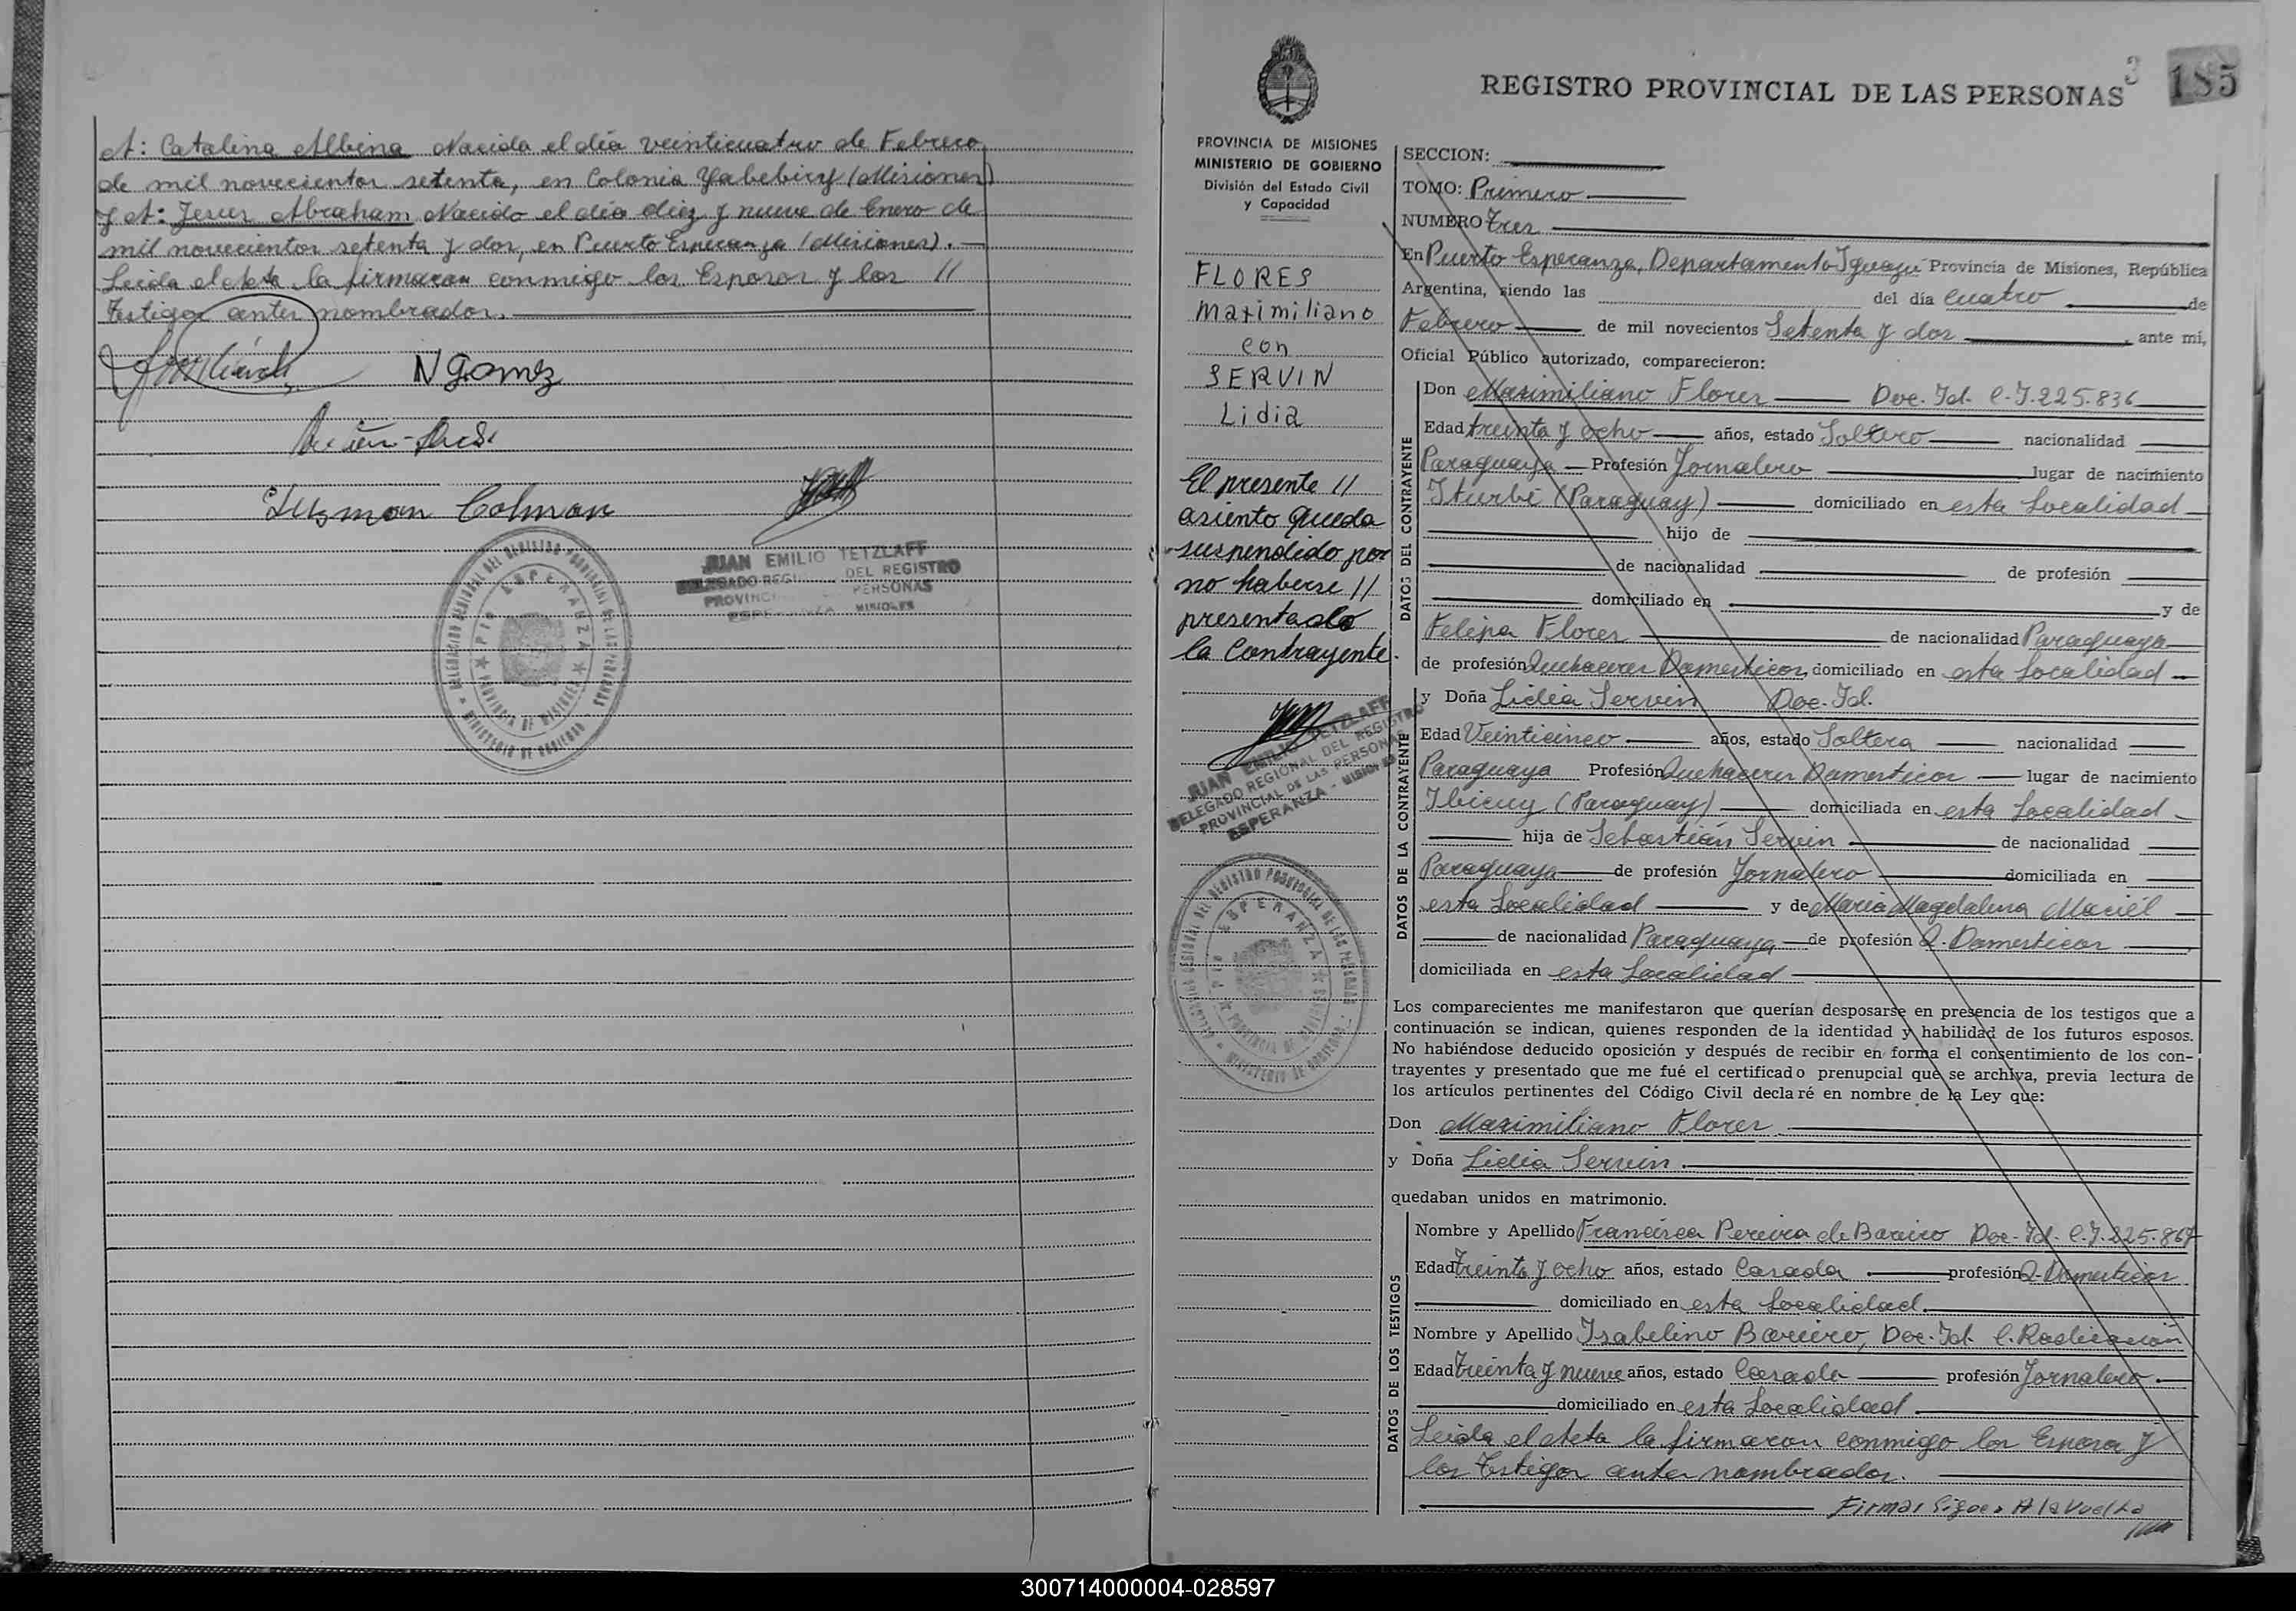 A: Catalina Albina Nacida el día veinticuatro de Febrero
de mil novecientos setenta, en Colonia Yabebiry (Misiones)
y A: Jesus Abraham Nacido el día diez y nueve de Enero de
mil novecientos setenta y dos, en Puerto Esperanza (Misiones).
Leida el Acta la firmaron conmigo los Esposos y los //
Testigos antes nombrados.
N Gomez
Guzman Colman
JUAN EMILIO TETZLAFF
DELEGADO REGIONAL DEL REGISTRO
PROVINCIAL PERSONAS
ESPERANZA MISIONES
DELEGACION REGIONAL DEL REGISTRO PROVINCIAL DE LAS PERSONAS
PTO ESPERANZA
PROVINCIA DE MISIONES
MINISTERIO DE GOBIERNO
REGISTRO PROVINCIAL DE LAS PERSONAS
3
185
PROVINCIA DE MISIONES
MINISTERIO DE GOBIERNO
División del Estado Civil
y Capacidad
FLORES
Maximiliano
con
SERVIN
Lidia
El presente //
asiento queda
suspendido por
no haberse //
presentado
la Contrayente.
JUAN EMILIO TETZLAFF
DELEGADO REGIONAL DEL REGISTRO
PROVINCIAL DE LAS PERSONAS
ESPERANZA - MISIONES
DELEGACION REGIONAL DEL REGISTRO PROVINCIAL DE LAS PERSONAS
PTO ESPERANZA
PROVINCIA DE MISIONES
MINISTERIO DE GOBIERNO
SECCION:
TOMO: Primero
NUMERO Tres
En Puerto Esperanza, Departamento Iguazú Provincia de Misiones, República
Argentina, siendo las del día Cuatro de
Febrero de mil novecientos Setenta y dos, ante mí,
Oficial Público autorizado, comparecieron:
DATOS DEL CONTRAYENTE
Don Maximiliano Flores Doc. Id. C.I. 225.836
Edad treinta y ocho años, estado Soltero nacionalidad
Paraguaya Profesión Jornalero lugar de nacimiento
Iturbe (Paraguay) domiciliado en esta Localidad
hijo de
de nacionalidad de profesión
domiciliado en y de
Felipa Flores de nacionalidad Paraguaya
de profesión Quehaceres Domesticos, domiciliado en esta Localidad
DATOS DE LA CONTRAYENTE
y Doña Lidia Servin Doc. Id.
Edad Veinticinco años, estado Soltera nacionalidad
Paraguaya Profesión Quehaceres Domesticos lugar de nacimiento
Ibicuy (Paraguay) domiciliada en esta Localidad
hija de Sebastián Servin de nacionalidad
Paraguaya de profesión Jornalero domiciliada en
esta Localidad y de Maria Magdalena Maciel
de nacionalidad Paraguaya de profesión Q. Domesticos
domiciliada en esta Localidad
Los comparecientes me manifestaron que querían desposarse en presencia de los testigos que a
continuación se indican, quienes responden de la identidad y habilidad de los futuros esposos.
No habiéndose deducido oposición y después de recibir en forma el consentimiento de los con-
trayentes y presentado que me fué el certificado prenupcial que se archiva, previa lectura de
los artículos pertinentes del Código Civil declaré en nombre de la Ley que:
Don Maximiliano Flores
y Doña Lidia Servin.
quedaban unidos en matrimonio.
DATOS DE LOS TESTIGOS
Nombre y Apellido Francisca Pereira de Bareiro Doc. Id. C.I. 225.867
Edad Treinta y ocho años, estado Casada profesión Q. Domesticos
domiciliado en esta Localidad.
Nombre y Apellido Isabelino Bareiro, Doc. Id. C. Radicación
Edad Treinta y nueve años, estado Casado profesión Jornalero.
domiciliado en esta Localidad.
Leida el Acta la firmaron conmigo los Esposos y
los Testigos antes nombrados.
Firmas Sigue A la Vuelta
300714000004-028597